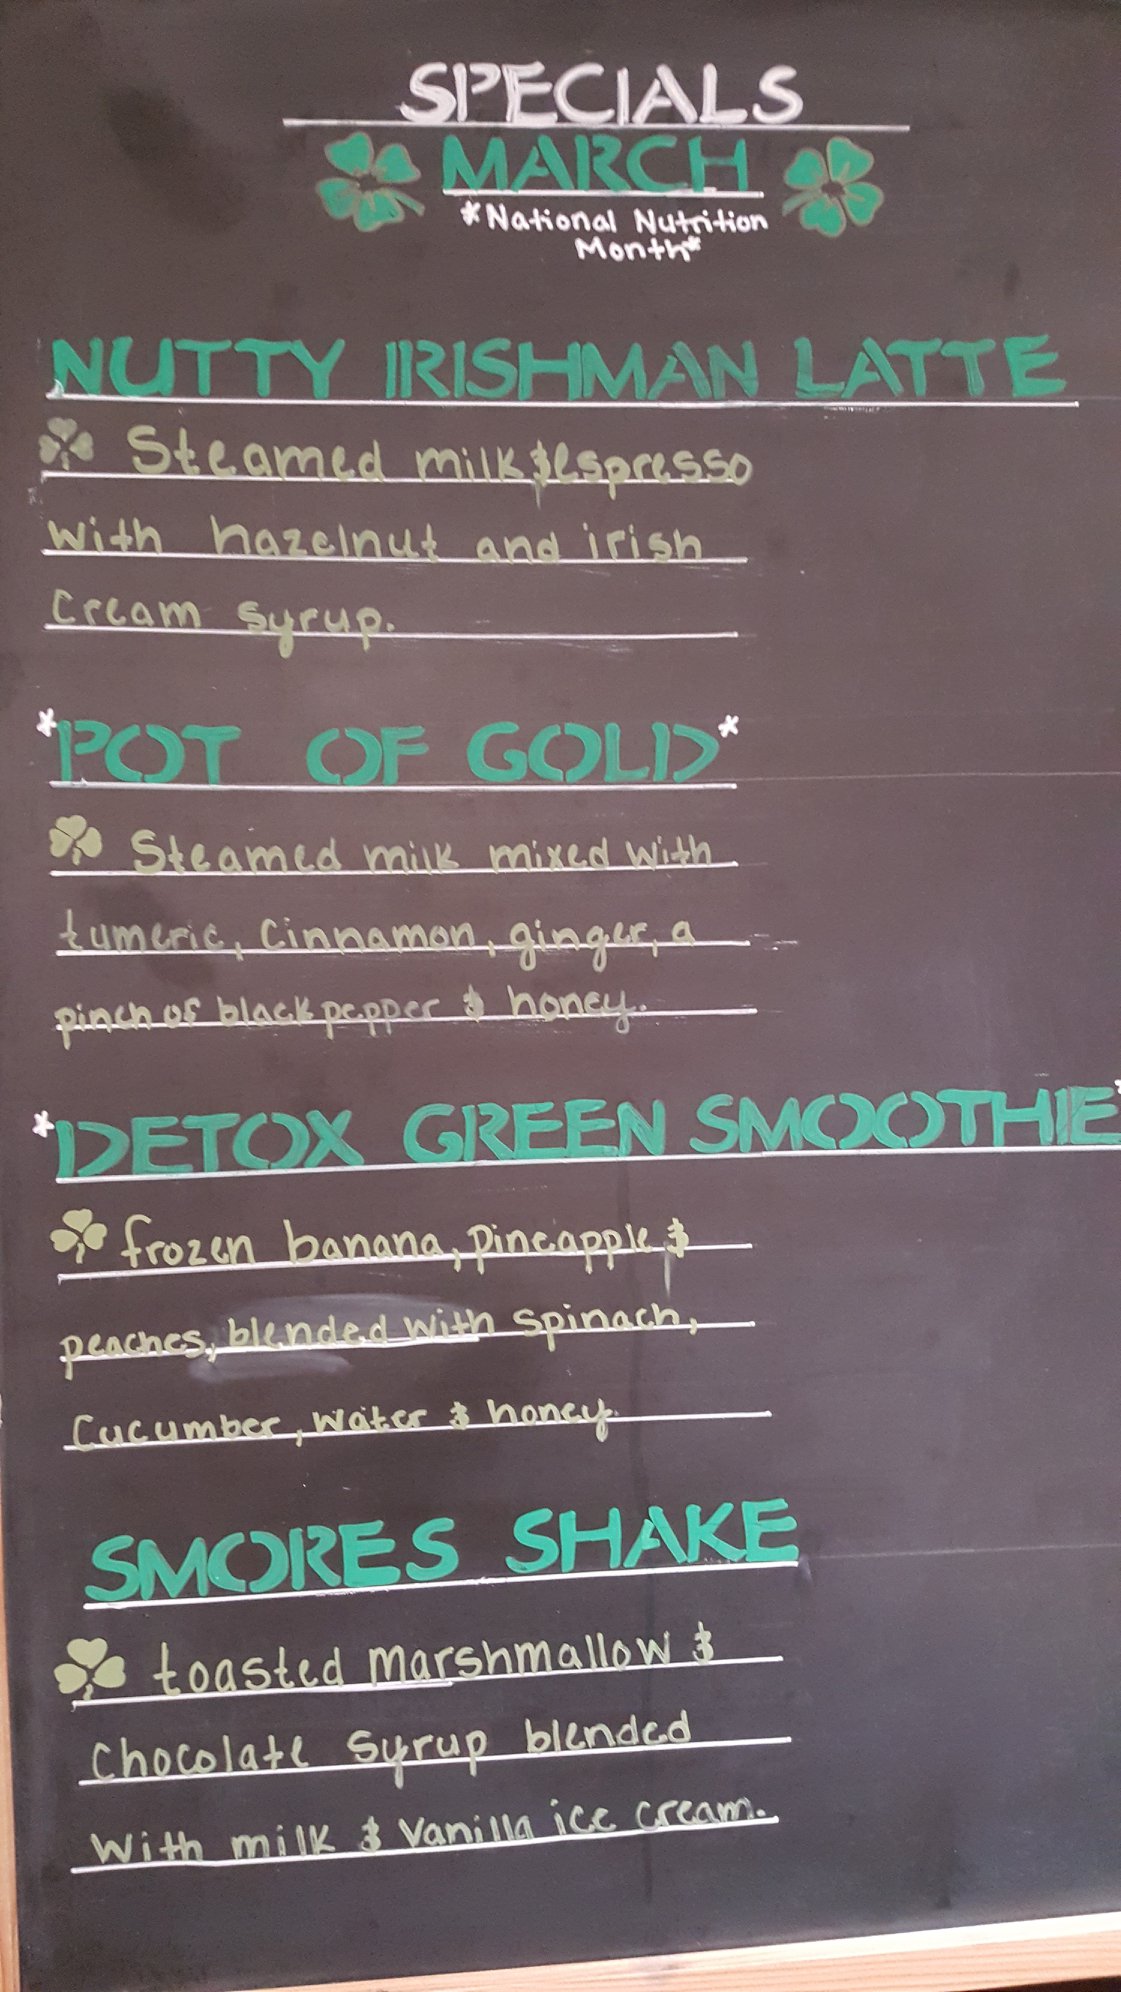 SPECIALS
MARCH
*National Nutrition
Month*
NUTTY IRISHMAN LATTE
Steamed milk & espresso
with hazelnut and irish
cream syrup.
*POT OF GOLD*
Steamed milk mixed with
tumeric, cinnamon, ginger, a
pinch of black pepper & honey.
*DETOX GREEN SMOOTHIE*
frozen banana, pineapple &
peaches, blended with spinach,
cucumber, water & honey.
SMORES SHAKE
toasted marshmallow &
chocolate syrup blended
with milk & vanilla ice cream.